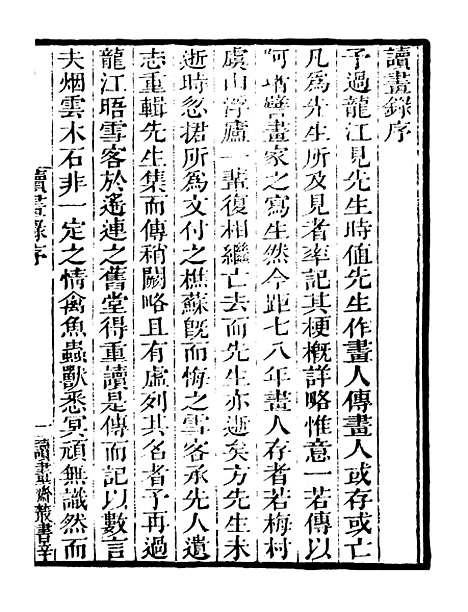 讀畫錄序
予過龍江見先生時値先生作畫人傳畫人或存或亡
凡爲先生所及見者率記其梗概詳略惟意一若傳以
阿堵譬畫家之寫生然今距七八年畫人存者若梅村
虞山菅廬一輩復相繼亡去而先生亦逝矣方先生未
逝時忽捃所爲文付之樵蘇旣而悔之雪客承先人遺
志重輯先生集而傳稍闕略且有虛列其名者予再過
龍江晤雪客於遙連之舊堂得重讀是傳而記以數言
夫烟雲木石非一定之情禽魚蟲獸悉冥頑無識然而
讀畫錄序
一
讀畫齋叢書辛